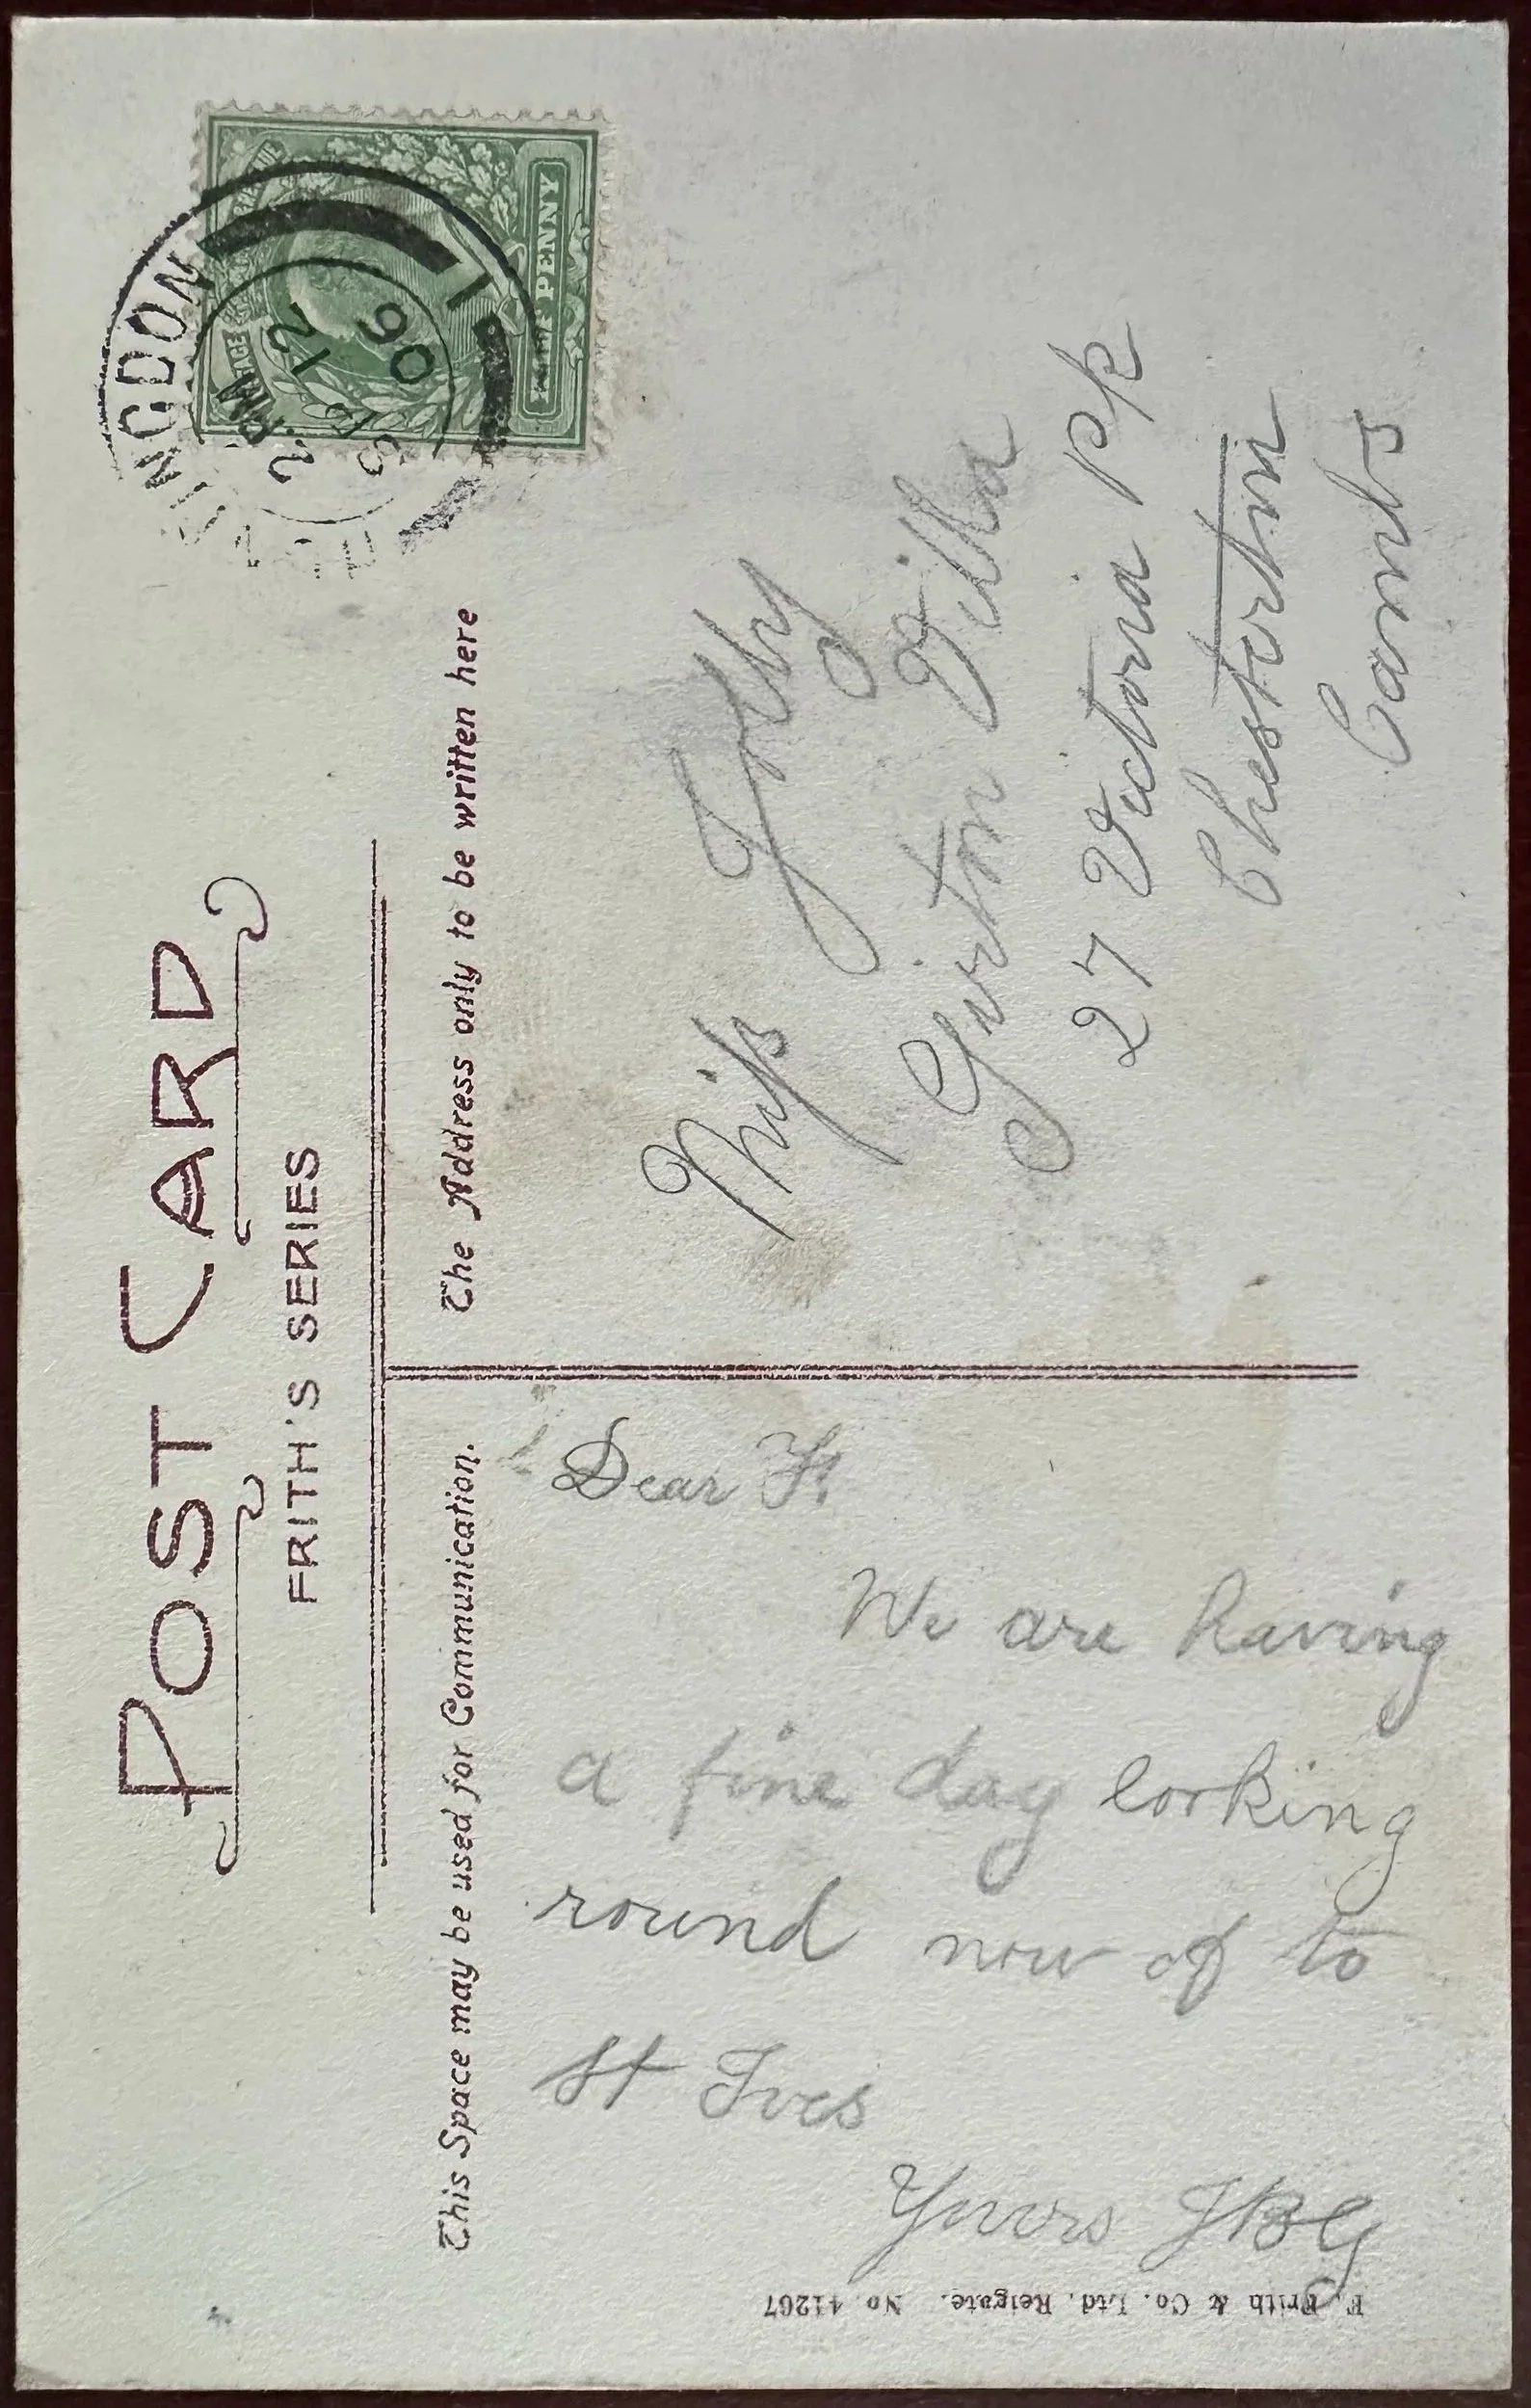 POST CARD
FRITH'S SERIES
This Space may be used for Communication.
The Address only to be written here
HALF PENNY
2 PM
06
Dear F.
We are having
a fine day looking
round now of to
St Ives
Yours JBG
Miss
Girton Villa
27 Victoria Pk
Chesterton
Cambs
F. Frith & Co. Ltd. Reigate. No 41267